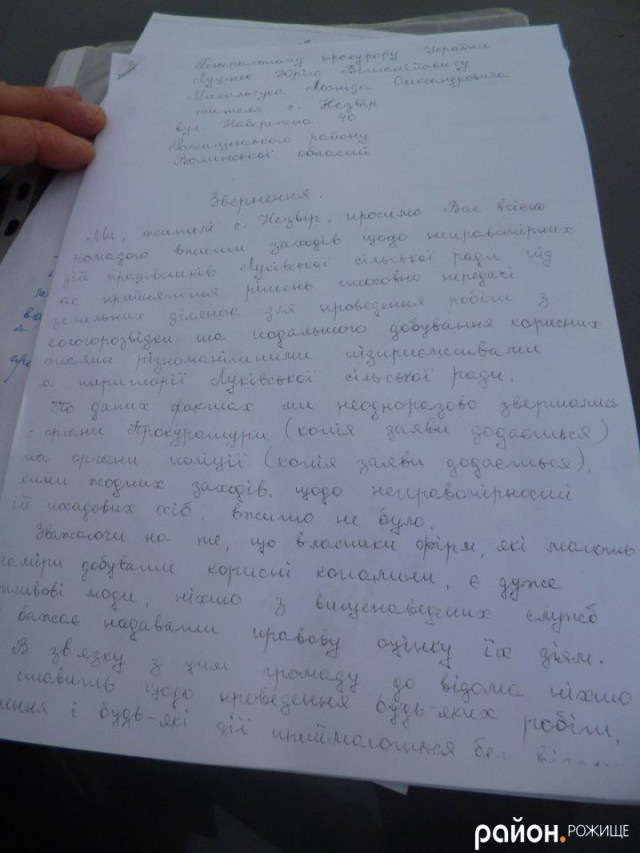 Генеральному прокурору України
Луценко Юрію Віталійовичу
Михальчука Леоніда Олександровича
жителя с. Незвір
вул Набережна 40
Рожищенського району
Волинської області
Звернення.
Ми, жителі с. Незвір, просимо Вас всією
ромадою вжити заходів щодо неправомірних
дій працівників Луківської сільської ради під
ас прийняття рішень стосовно передачі
земельних ділянок для проведення робіт з
еологорозвідки та подальшого добування корисних
опалин різноманітними підприємствами
а території Луківської сільської ради.
По даних фактах ми неодноразово звертались
органи Прокуратури (копія заяви додається)
та органи поліції (копія заяви додається),
кими жодних заходів, щодо неправомірності
ій посадових осіб вжито не було.
Зважаючи на те, що власники фірм, які мають
наміри добувати корисні копалини, є дуже
пливові люди, ніхто з вищенаведених служб
бажає надавати правову оцінку їх діям.
В зв'язку з цим громаду до відома ніхто
ставить щодо проведення будь-яких робіт,
шення і будь-які дії приймаються без
район.РОЖИЩЕ